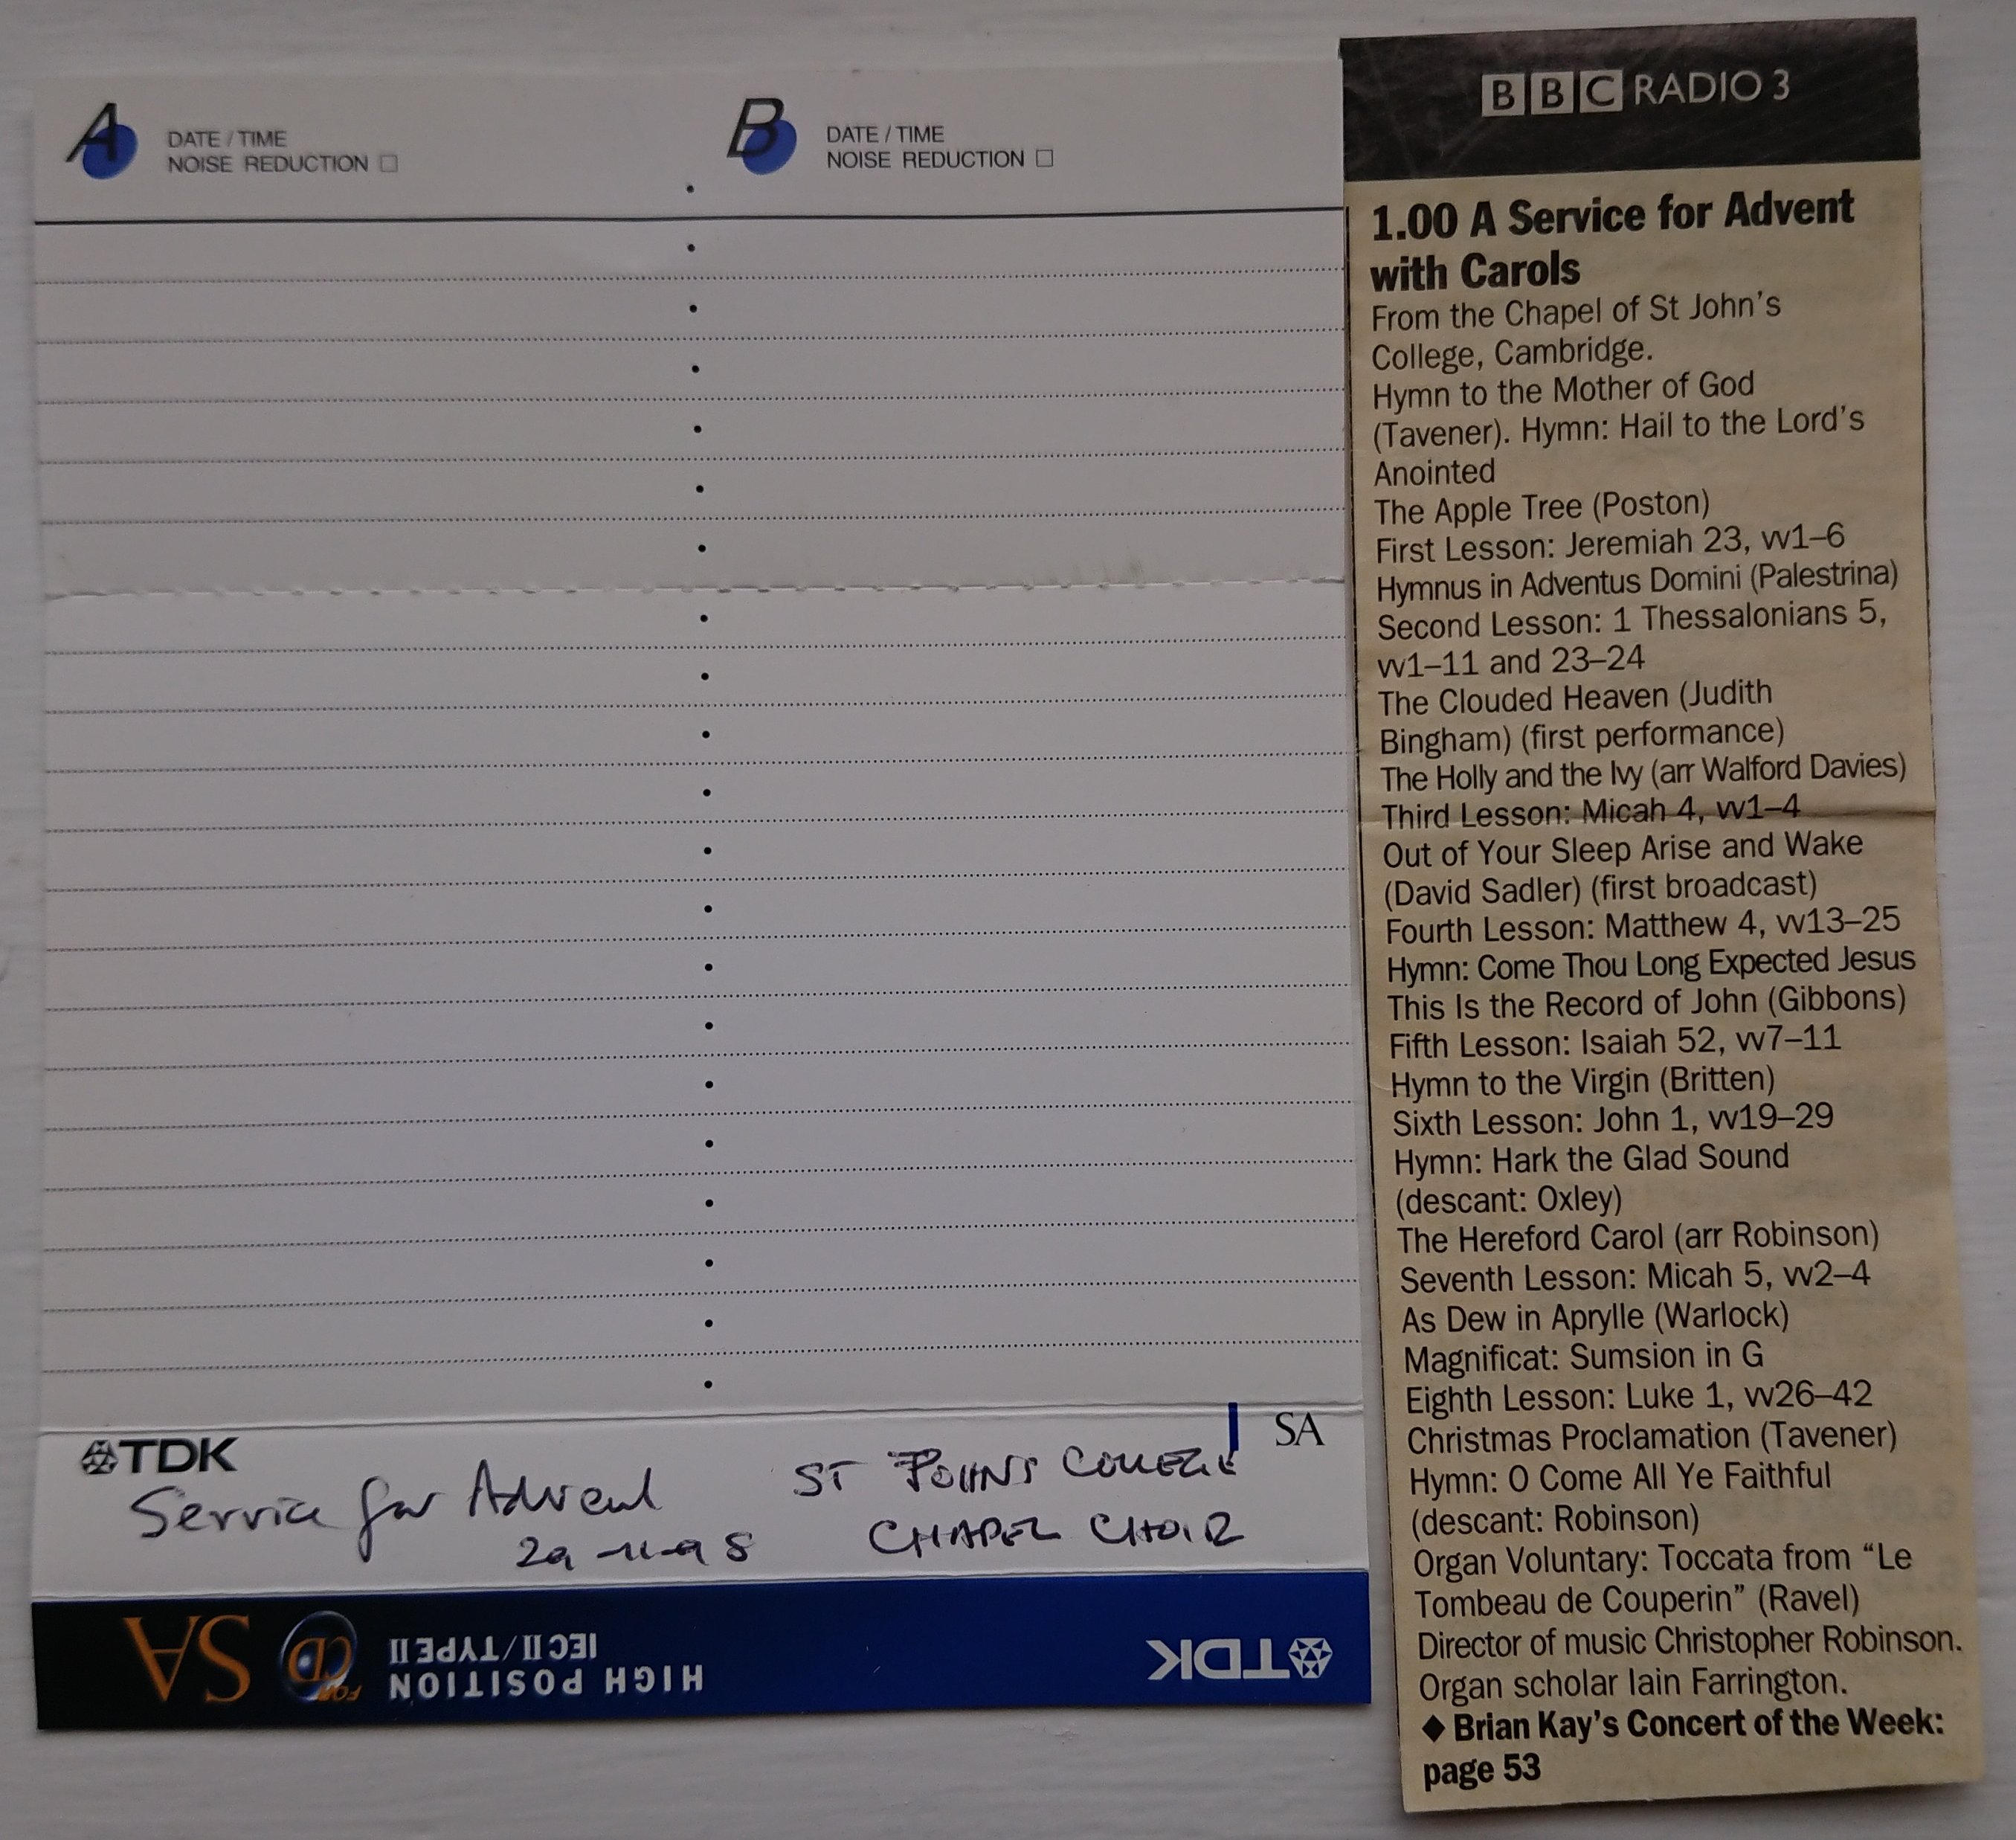 A DATE / TIME
NOISE REDUCTION
B DATE / TIME
NOISE REDUCTION
TDK
SA
Service for Advent
29-11-98
ST JOHNS COLLEGE
CHAPEL CHOIR
TDK
HIGH POSITION
IEC II / TYPE II
FOR CD
SA
BBC RADIO 3
1.00 A Service for Advent
with Carols
From the Chapel of St John's
College, Cambridge.
Hymn to the Mother of God
(Tavener). Hymn: Hail to the Lord's
Anointed
The Apple Tree (Poston)
First Lesson: Jeremiah 23, vv1–6
Hymnus in Adventus Domini (Palestrina)
Second Lesson: 1 Thessalonians 5,
vv1–11 and 23–24
The Clouded Heaven (Judith
Bingham) (first performance)
The Holly and the Ivy (arr Walford Davies)
Third Lesson: Micah 4, vv1–4
Out of Your Sleep Arise and Wake
(David Sadler) (first broadcast)
Fourth Lesson: Matthew 4, vv13–25
Hymn: Come Thou Long Expected Jesus
This Is the Record of John (Gibbons)
Fifth Lesson: Isaiah 52, vv7–11
Hymn to the Virgin (Britten)
Sixth Lesson: John 1, vv19–29
Hymn: Hark the Glad Sound
(descant: Oxley)
The Hereford Carol (arr Robinson)
Seventh Lesson: Micah 5, vv2–4
As Dew in Aprylle (Warlock)
Magnificat: Sumsion in G
Eighth Lesson: Luke 1, vv26–42
Christmas Proclamation (Tavener)
Hymn: O Come All Ye Faithful
(descant: Robinson)
Organ Voluntary: Toccata from “Le
Tombeau de Couperin” (Ravel)
Director of music Christopher Robinson.
Organ scholar Iain Farrington.
◆ Brian Kay's Concert of the Week:
page 53